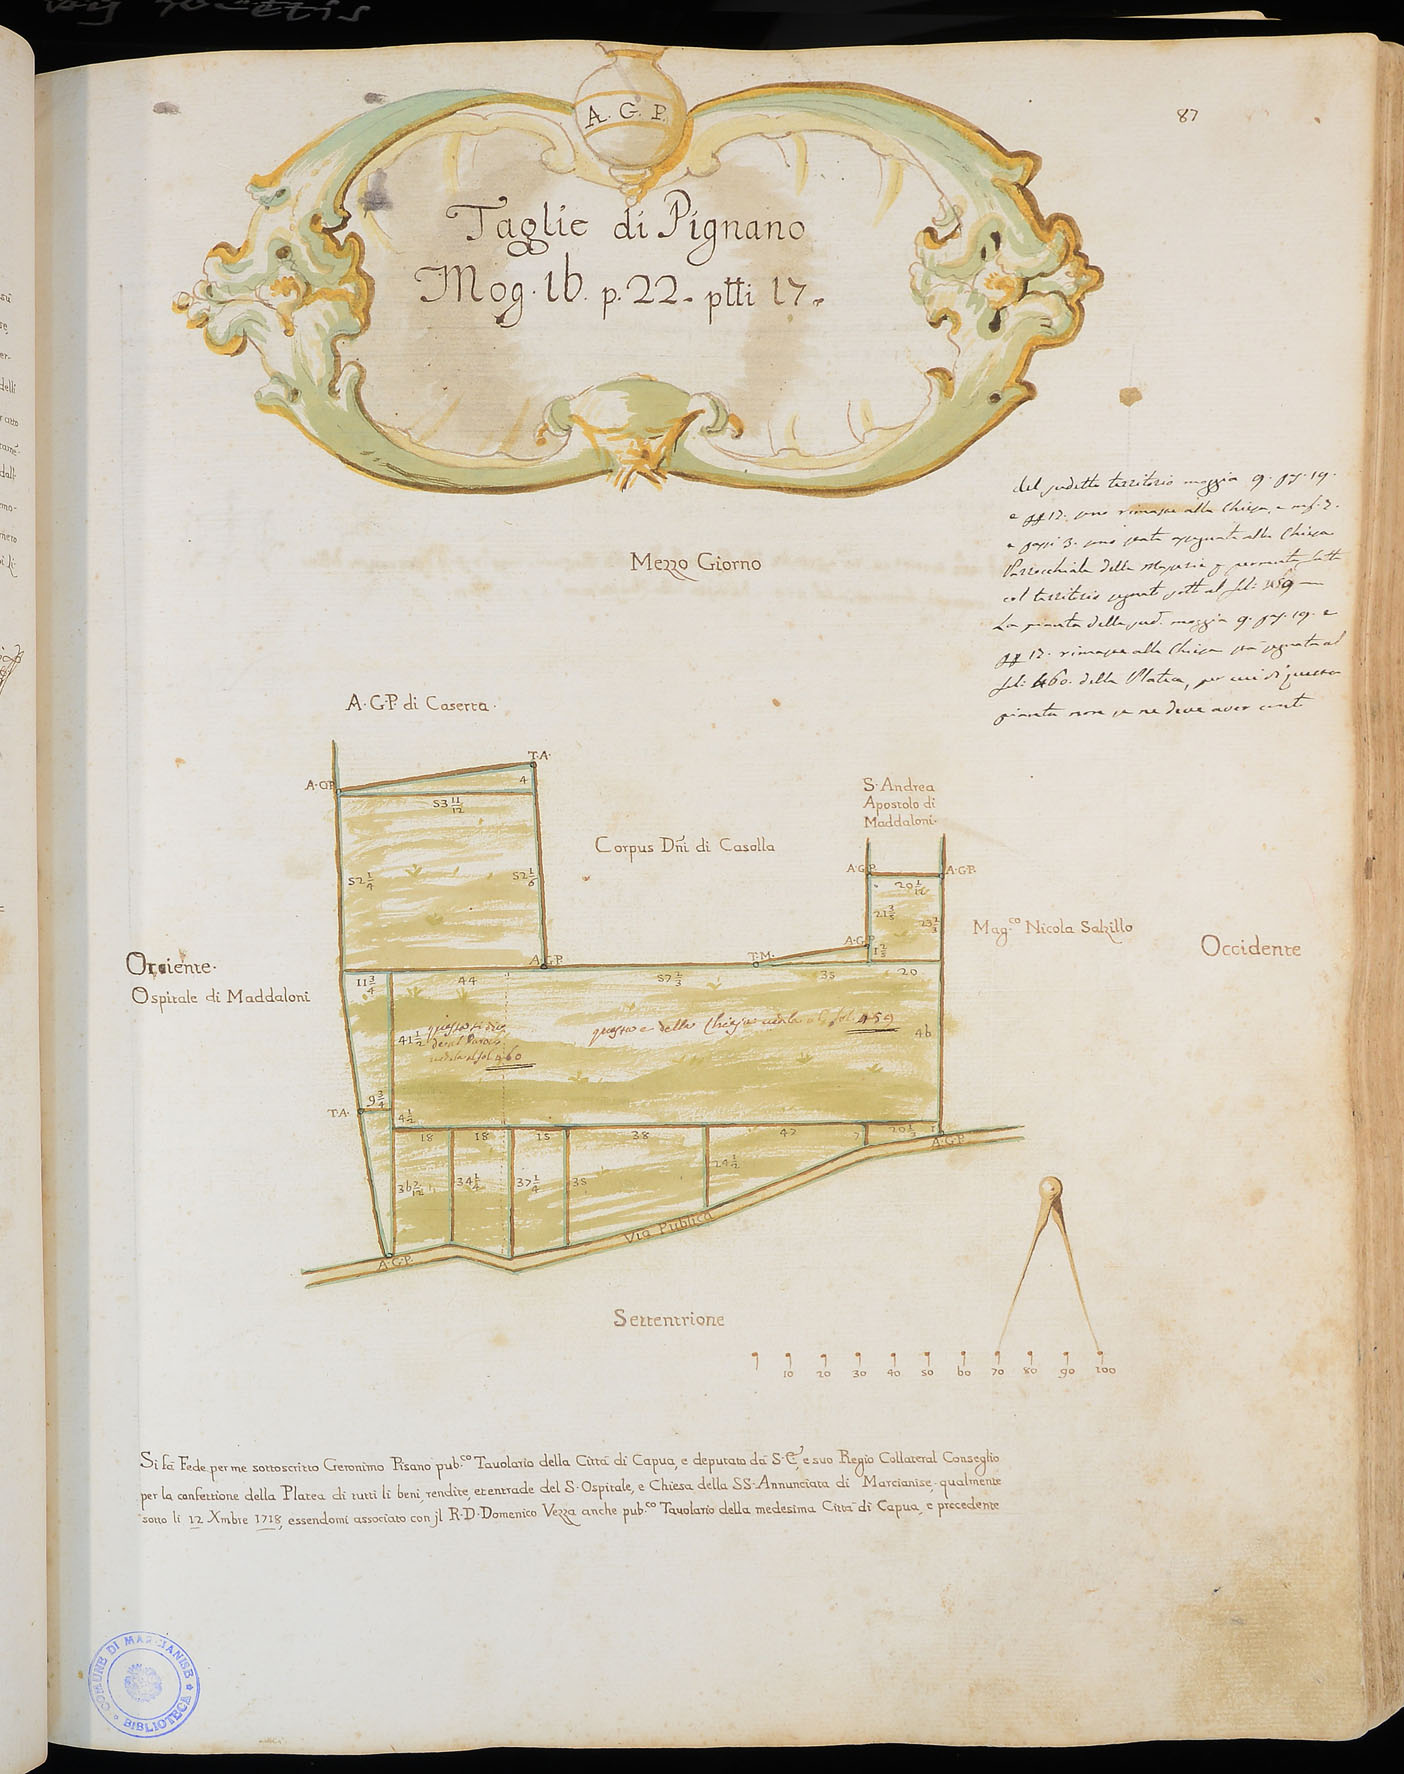 87
A. G. P.
Taglie di Pignano
Mog. 16. p. 22. ptti 17.
del sudetto territorio moggia 9. pas. 19.
e 17. sono rimaste alla Chiesa, e
e passi 3. sono state assegnate alla Chiesa
Parrocchiale della
col territorio segnato sott al fol: 459
La pianta delle sud. moggia 9. pas. 19. e
17. rimaste alla Chiesa sta segnata al
fol: 460. della Platea, per cui di questa
pianta non se ne deve aver cont
Mezzo Giorno
A.G.P. di Caserta.
T.A.
A.G.P.
4
53 11/12
S. Andrea
Apostolo di
Maddaloni.
Corpus Dñi di Casolla
A.G.P.
A.G.P.
52 1/4
52 1/6
20
21 3/5
23
Mag.co Nicola Salzillo
Occidente
A.G.P.
A.G.P.
T.M.
1
Oriente.
Ospitale di Maddaloni
11 3/4
44
57 1/3
35
20
41 1/2
fol. 460
questo e della Chiesa fol. 459
46
T.A.
9 3/4
4 1/2
18
18
15
38
42
7
20
1
A.G.P.
36
34 1/4
37 1/4
35
24 1/2
Via Publica
A.G.P.
Settentrione
10 20 30 40 50 60 70 80 90 100
Si fà Fede per me sottoscritto Geronimo Pisano pub.co Tavolario della Città di Capua, e deputato dà S. E., e suo Regio Collateral Conseglio
per la confettione della Platea di tutti li beni, rendite, et entrade del S. Ospitale, e Chiesa della SS. Annunciata di Marcianise, qualmente
sotto li 12 Xmbre 1718, essendomi associato con jl R. D. Domenico Vezza anche pub.co Tavolario della medesima Città di Capua, e precedente
COMUNE DI MARCIANISE
BIBLIOTECA